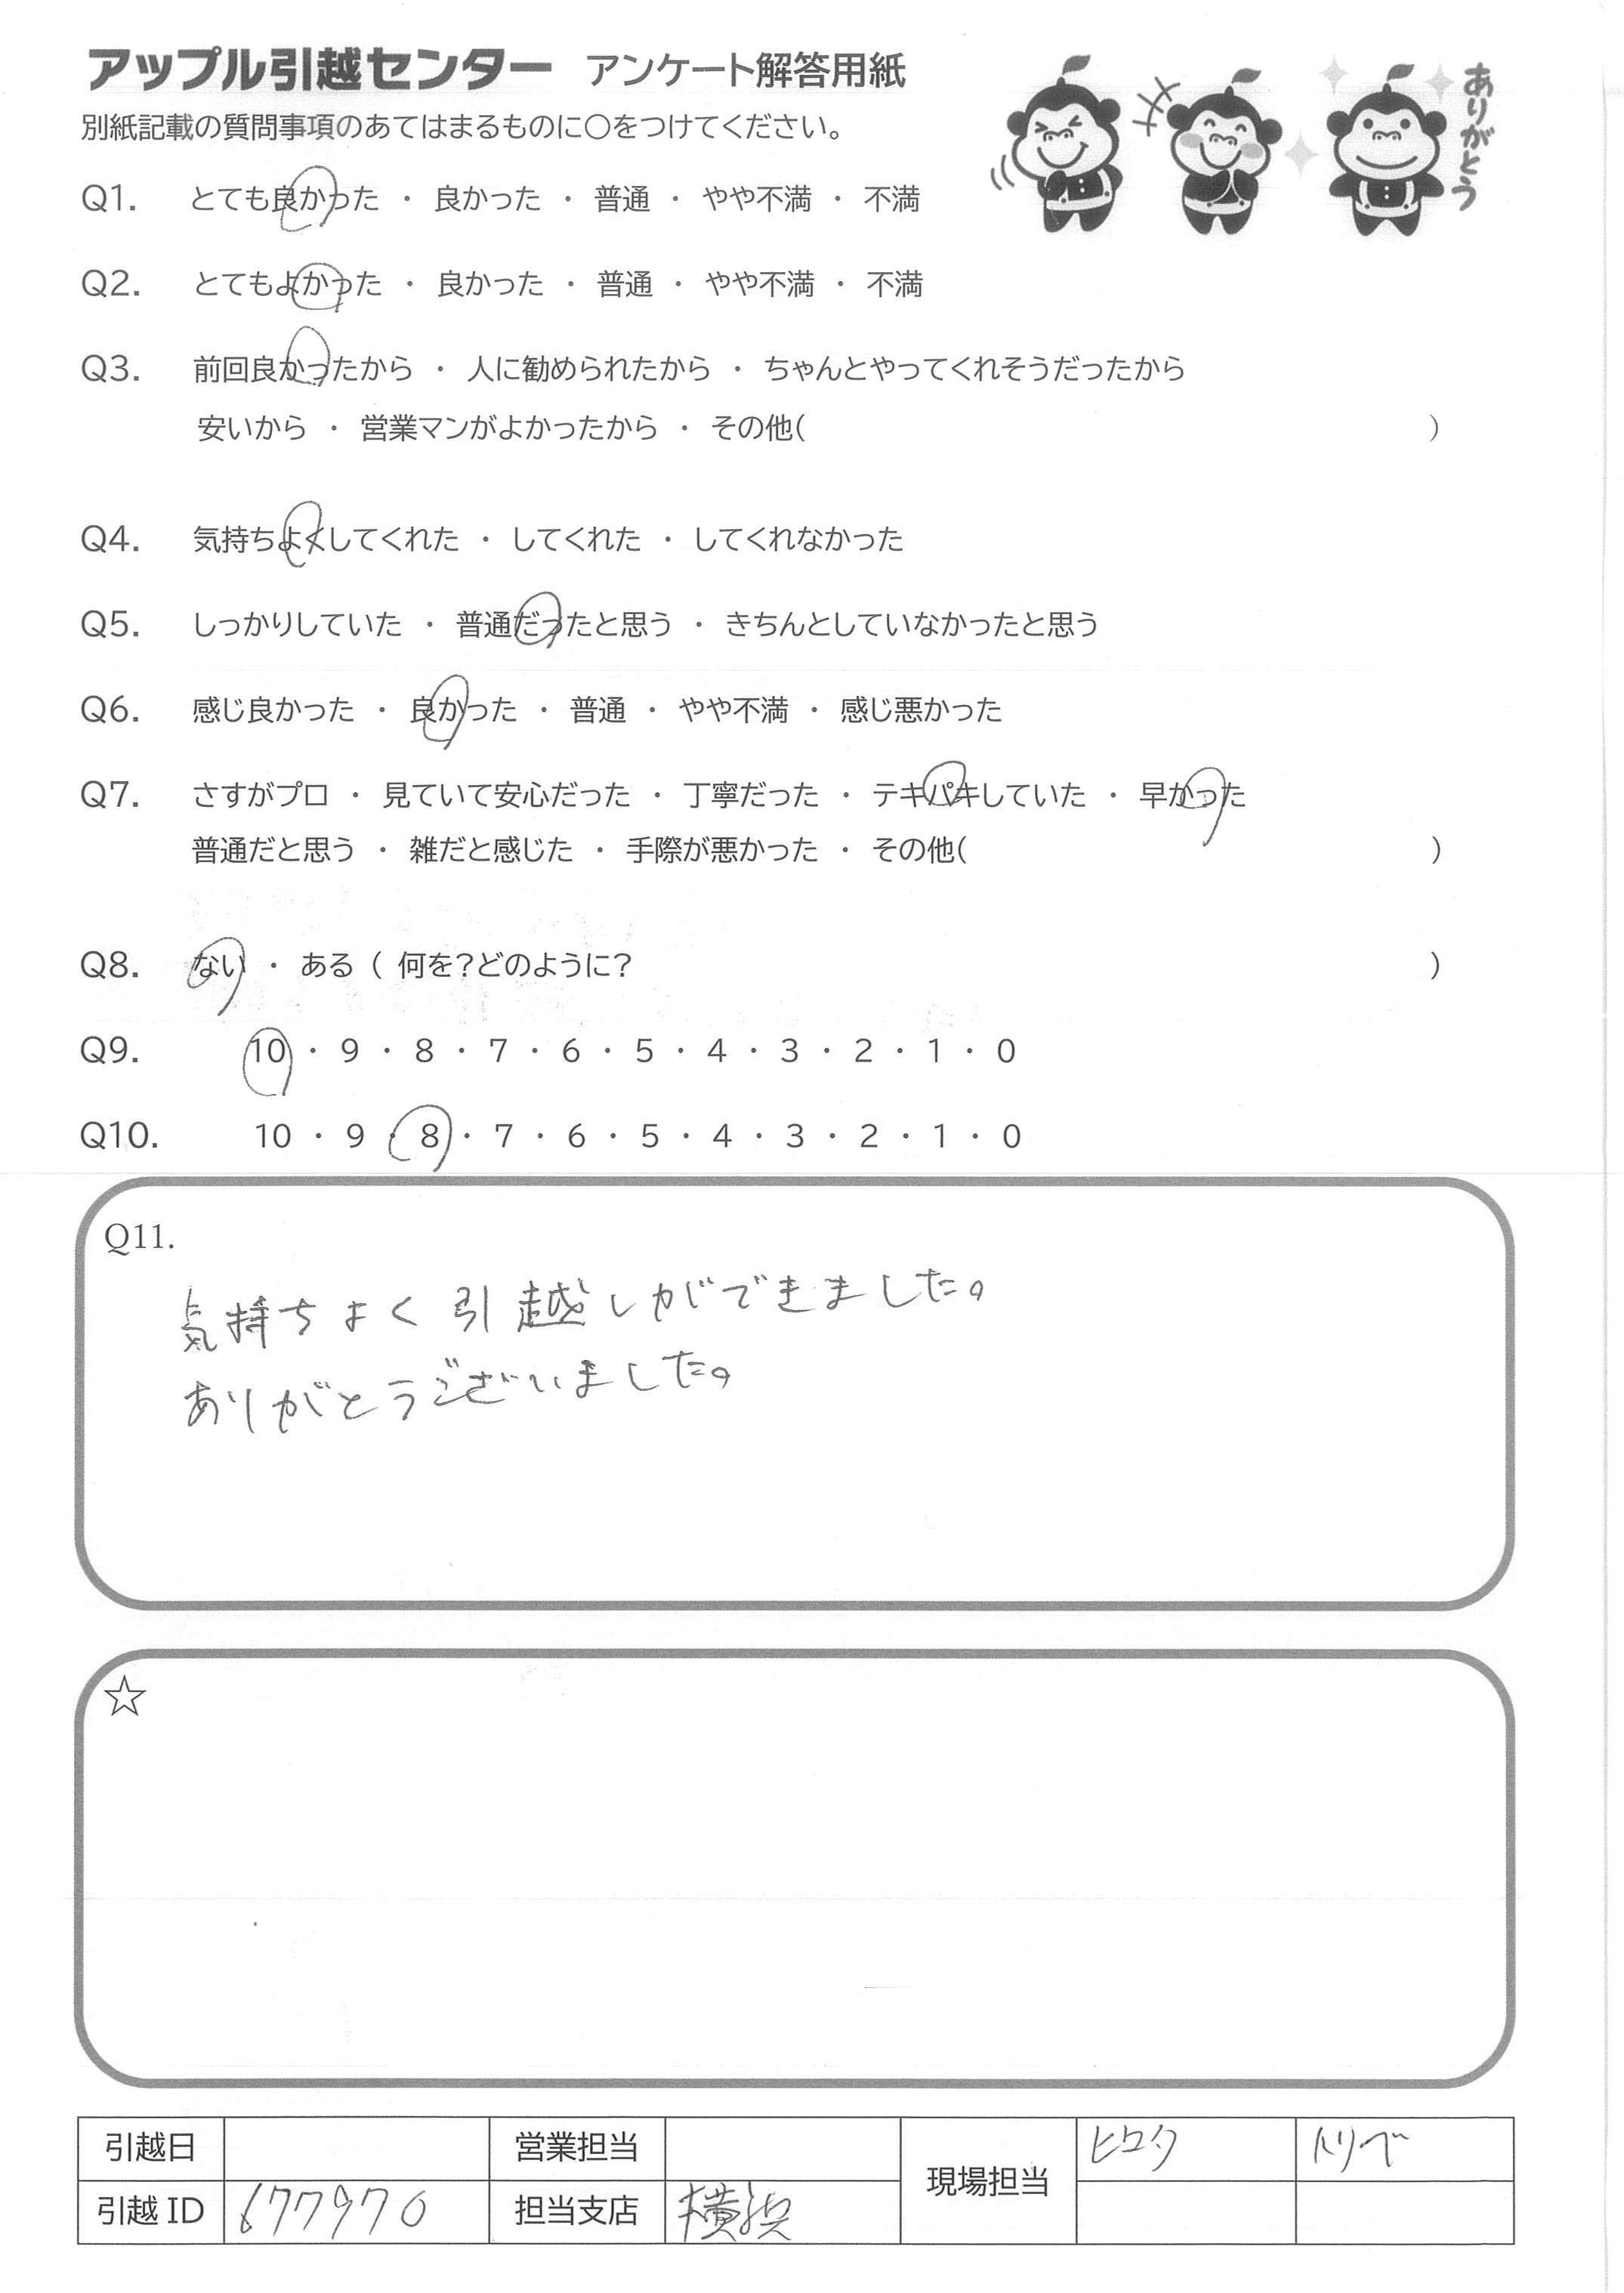 アップル引越センター アンケート解答用紙
ありがとう
別紙記載の質問事項のあてはまるものに〇をつけてください。
Q1. とても良かった ・ 良かった ・ 普通 ・ やや不満 ・ 不満
Q2. とてもよかった ・ 良かった ・ 普通 ・ やや不満 ・ 不満
Q3. 前回良かったから ・ 人に勧められたから ・ ちゃんとやってくれそうだったから
安いから ・ 営業マンがよかったから ・ その他( )
Q4. 気持ちよくしてくれた ・ してくれた ・ してくれなかった
Q5. しっかりしていた ・ 普通だったと思う ・ きちんとしていなかったと思う
Q6. 感じ良かった ・ 良かった ・ 普通 ・ やや不満 ・ 感じ悪かった
Q7. さすがプロ ・ 見ていて安心だった ・ 丁寧だった ・ テキパキしていた ・ 早かった
普通だと思う ・ 雑だと感じた ・ 手際が悪かった ・ その他( )
Q8. ない ・ ある ( 何を?どのように? )
Q9. 10 ・ 9 ・ 8 ・ 7 ・ 6 ・ 5 ・ 4 ・ 3 ・ 2 ・ 1 ・ 0
Q10. 10 ・ 9 ・ 8 ・ 7 ・ 6 ・ 5 ・ 4 ・ 3 ・ 2 ・ 1 ・ 0
Q11.
気持ちよく引越しができました。
ありがとうございました。
☆
引越日 営業担当 現場担当 トリベ
引越ID 677970 担当支店 横浜